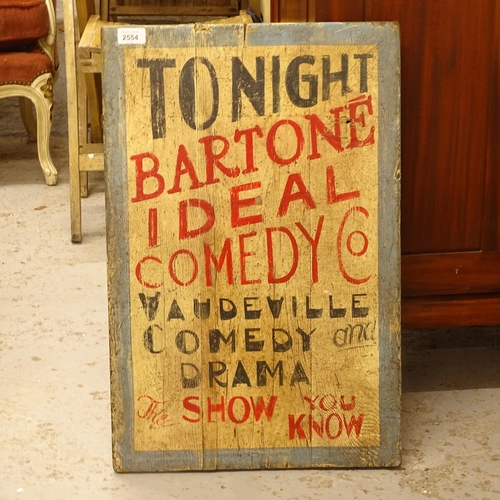 2554
TONIGHT
BARTONÉ
IDEAL
COMEDY Co
VAUDEVILLE
COMEDY and
DRAMA
The SHOW YOU KNOW